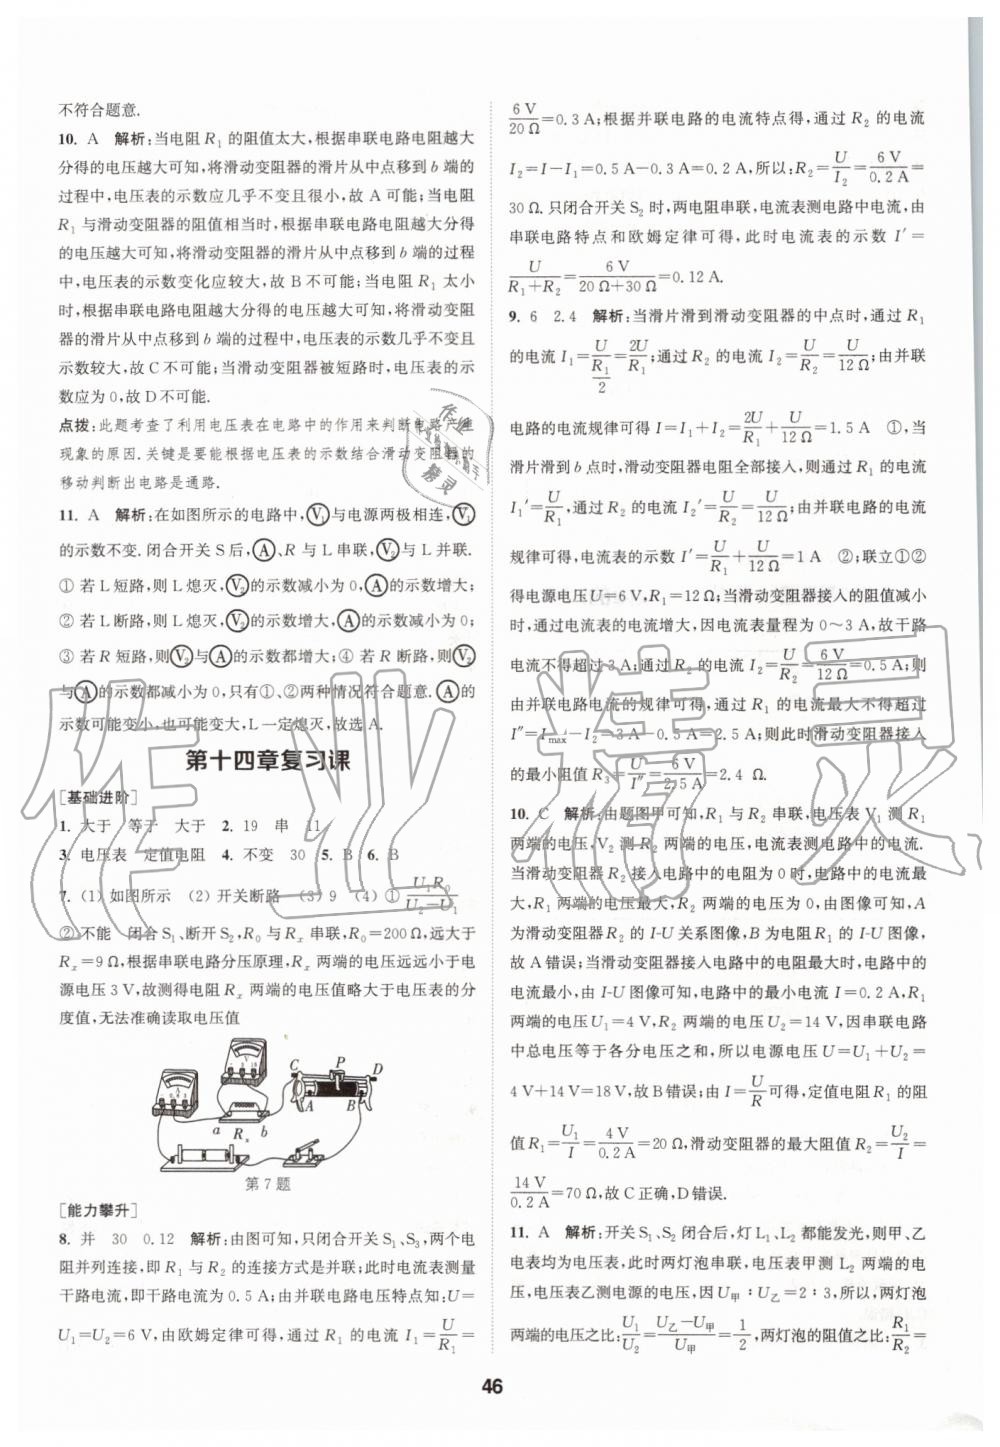 不符合题意.
10. A 解析:当电阻 R₁ 的阻值太大,根据串联电路电阻越大
分得的电压越大可知,将滑动变阻器的滑片从中点移到 b 端的
过程中,电压表的示数应几乎不变且很小,故 A 可能;当电阻
R₁ 与滑动变阻器的阻值相当时,根据串联电路电阻越大分得
的电压越大可知,将滑动变阻器的滑片从中点移到 b 端的过程
中,电压表的示数变化应较大,故 B 不可能;当电阻 R₁ 太小
时,根据串联电路电阻越大分得的电压越大可知,将滑动变阻
器的滑片从中点移到 b 端的过程中,电压表的示数几乎不变且
示数较大,故 C 不可能;当滑动变阻器被短路时,电压表的示
数应为 0,故 D 不可能.
点拨:此题考查了利用电压表在电路中的作用来判断电路产生
现象的原因.关键是要能根据电压表的示数结合滑动变阻器的
移动判断出电路是通路.
11. A 解析:在如图所示的电路中,V₁与电源两极相连,V₁
的示数不变.闭合开关 S 后,A、R 与 L 串联,V₂与 L 并联.
① 若 L 短路,则 L 熄灭,V₂的示数减小为 0,A的示数增大;
② 若 L 断路,则 L 熄灭,V₂的示数增大,A的示数减小为 0;
③ 若 R 短路,则V₂与A的示数都增大;④ 若 R 断路,则V₂
与A的示数都减小为 0,只有①、②两种情况符合题意.A的
示数可能变小,也可能变大,L 一定熄灭,故选 A.
第十四章复习课
[基础进阶]
1. 大于 等于 大于 2. 19 串 11
3. 电压表 定值电阻 4. 不变 30 5. B 6. B
7. (1) 如图所示 (2) 开关断路 (3) 9 (4) ① U₁R₀/(U₂−U₁)
② 不能 闭合 S₁、断开 S₂,R₀ 与 Rₓ 串联,R₀=200 Ω,远大于
Rₓ=9 Ω,根据串联电路分压原理,Rₓ 两端的电压远远小于电
源电压 3 V,故测得电阻 Rₓ 两端的电压值略大于电压表的分
度值,无法准确读取电压值
C P D
A B
a Rₓ b
第 7 题
[能力攀升]
8. 并 30 0.12 解析:由图可知,只闭合开关 S₁、S₃,两个电
阻并列连接,即 R₁ 与 R₂ 的连接方式是并联;此时电流表测量
干路电流,即干路电流为 0.5 A;由并联电路电压特点知:U=
U₁=U₂=6 V,由欧姆定律可得,通过 R₁ 的电流 I₁=U/R₁=
6 V/20 Ω=0.3 A;根据并联电路的电流特点得,通过 R₂ 的电流
I₂=I−I₁=0.5 A−0.3 A=0.2 A,所以:R₂=U/I₂=6 V/0.2 A=
30 Ω.只闭合开关 S₂ 时,两电阻串联,电流表测电路中电流,由
串联电路特点和欧姆定律可得,此时电流表的示数 I′=
U/(R₁+R₂)=6 V/(20 Ω+30 Ω)=0.12 A.
9. 6 2.4 解析:当滑片滑到滑动变阻器的中点时,通过 R₁
的电流 I₁=U/(R₁/2)=2U/R₁;通过 R₂ 的电流 I₂=U/R₂=U/12 Ω;由并联
电路的电流规律可得 I=I₁+I₂=2U/R₁+U/12 Ω=1.5 A ①,当
滑片滑到 b 点时,滑动变阻器电阻全部接入,则通过 R₁ 的电流
I₁′=U/R₁,通过 R₂ 的电流 I₂′=U/R₂=U/12 Ω;由并联电路的电流
规律可得,电流表的示数 I′=U/R₁+U/12 Ω=1 A ②;联立①②
得电源电压 U=6 V,R₁=12 Ω;当滑动变阻器接入的阻值减小
时,通过电流表的电流增大,因电流表量程为 0～3 A,故干路
电流不得超过 3 A;通过 R₂ 的电流 I₂=U/R₂=6 V/12 Ω=0.5 A;则
由并联电路电流的规律可得,通过 R₁ 的电流最大不得超过
I″=Imax−I₂=3 A−0.5 A=2.5 A;则此时滑动变阻器接入
的最小阻值 R₃=U/I″=6 V/2.5 A=2.4 Ω.
10. C 解析:由题图甲可知,R₁ 与 R₂ 串联,电压表 V₁ 测 R₁
两端的电压,V₂ 测 R₂ 两端的电压,电流表测电路中的电流.
当滑动变阻器 R₂ 接入电路中的电阻为 0 时,电路中的电流最
大,R₁ 两端的电压最大,R₂ 两端的电压为 0,由图像可知,A
为滑动变阻器 R₂ 的 I-U 关系图像,B 为电阻 R₁ 的 I-U 图像,
故 A 错误;当滑动变阻器接入电路中的电阻最大时,电路中的
电流最小,由 I-U 图像可知,电路中的最小电流 I=0.2 A,R₁
两端的电压 U₁=4 V,R₂ 两端的电压 U₂=14 V,因串联电路
中总电压等于各分电压之和,所以电源电压 U=U₁+U₂=
4 V+14 V=18 V,故 B 错误;由 I=U/R 可得,定值电阻 R₁ 的阻
值 R₁=U₁/I=4 V/0.2 A=20 Ω,滑动变阻器的最大阻值 R₂=U₂/I=
14 V/0.2 A=70 Ω,故 C 正确,D 错误.
11. A 解析:开关 S₁、S₂ 闭合后,灯 L₁、L₂ 都能发光,则甲、乙
电表均为电压表,此时两灯泡串联,电压表甲测 L₂ 两端的电
压,电压表乙测电源的电压,因 U甲∶U乙=2∶3,所以,两灯泡
两端的电压之比:U₁/U₂=(U乙−U甲)/U甲=1/2,两灯泡的阻值之比:R₁/R₂=
46
作业精灵